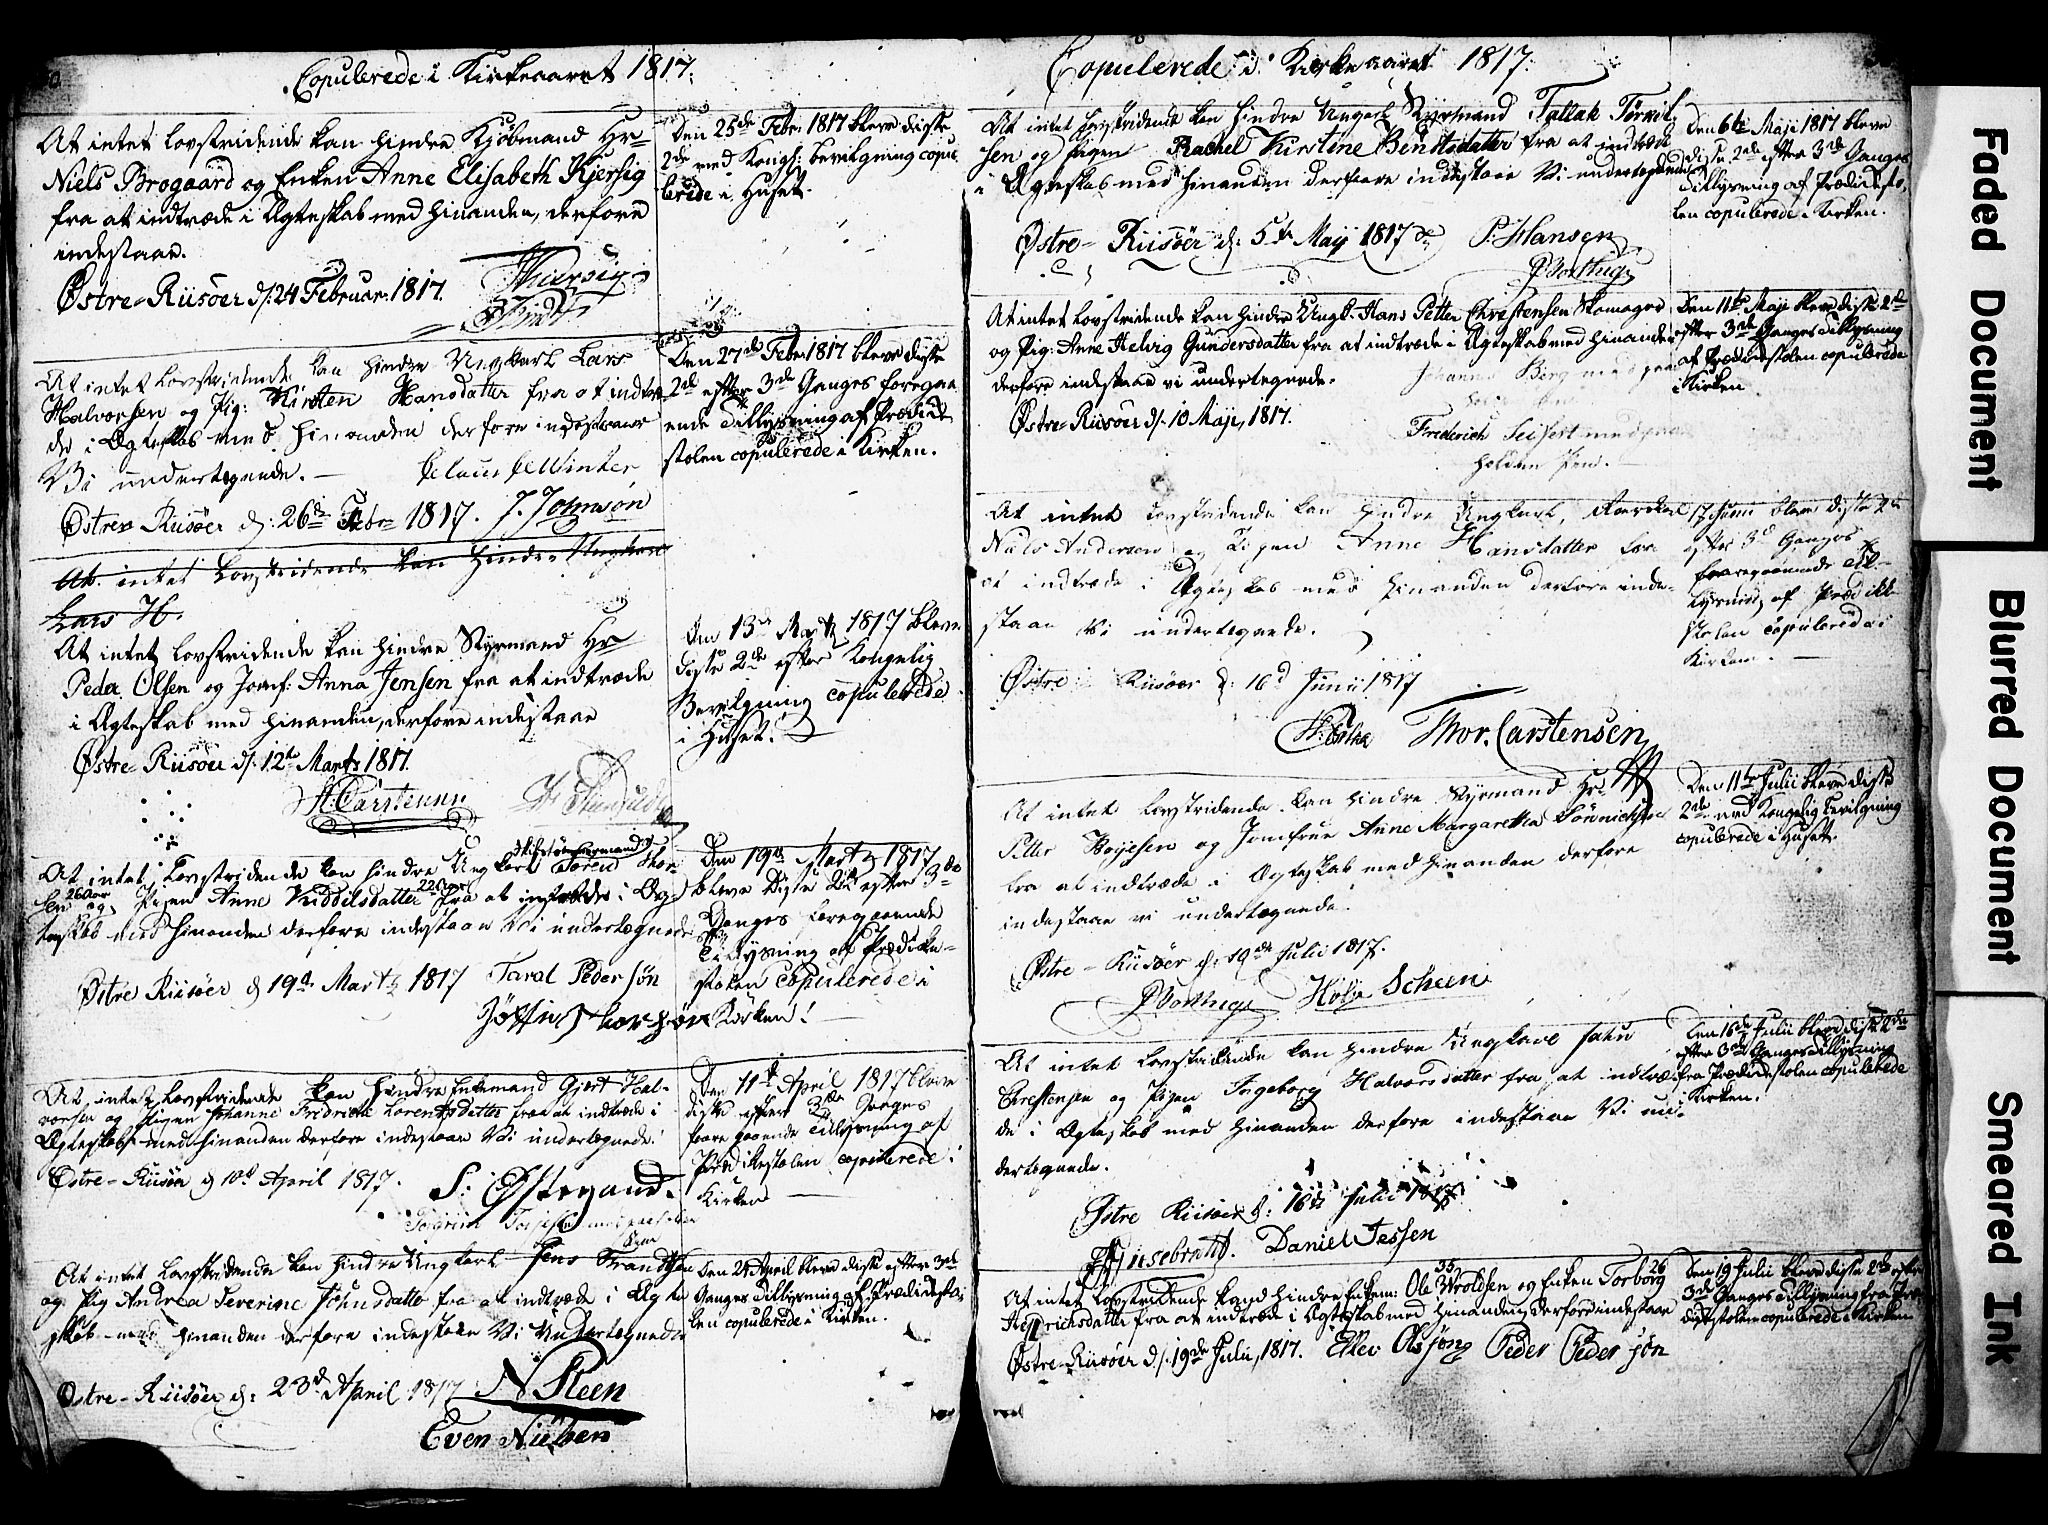 Copulerede i Kirkeaaret 1817.
At intet Lovstridende kan hindre Kjøbmand Hr
Niels Brogaard og Enken Anne Elisabeth Kjersig
fra at indtræde i Ægteskab med hinanden, derfore
indestaae.
Østre-Riisøer d. 24 Februar 1817.
Den 25de Febr. 1817 bleve disse
2de med Kongl: Bevilgning copu-
lerede i Huset.
At intet Lovstridende kan hindre Ungkarl Lars
Halvorsen og Pig: Kirsten Hansdatter fra at indtræ
de i Ægteskab med hinanden derfore indestaaer
Vi undertegnede. Claus Winter
Østre Riisøer d: 26de Febr 1817. J. Johnsøn
Den 27de Febr. 1817 bleve disse
2de efter 3de Ganges foregaa
ende Tillysning af Prædike
stolen copulerede i Kirken.
At intet Lovstridende kan hindre Ungkarl
Lars H.
At intet Lovstridende kan hindre Styrmand Hr
Peder Olsen og Jomf: Anna Jensen fra at indtræde
i Ægteskab med hinanden, derfore indestaae
Østre-Riisøer d. 12te Marts 1817.
H. Carstensen
Den 13de Marts 1817 bleve
disse 2de efter Kongelig
Bevilgning copulerede
i Huset.
At intet Lovstridende kan hindre Ungkarl Søren Thor-
sen 26 Aar og Pigen Anne Kiddilsdatter 22 Aar fra at indtræde i Æg
teskab med hinanden derfore indestaae Vi undertegnede
Østre Riisøer d 19de Marts 1817 Taral Pedersøn
Den 19de Marts 1817
bleve disse 2de efter 3de
Ganges foregaaende
Tillysning af Prædike-
stolen copulerede i
Kirken!
At intet Lovstridende kan hindre Enkemand Gjert Hal-
vorsen og Pigen Johanne Fridricke Lorentsdatter fra at indtræde i
Ægteskab med hinanden derfore indestaae Vi undertegnede.
Østre-Riisøer d 10de April 1817. S. Østegaard.
Den 11te April 1817 bleve
disse efter 3de Ganges
foregaaende Tillysning af
Prædikestolen copulerede i
Kirken
At intet Lovstridende kan hindre Ungkarl Jens Frandsen
og Pig Andrea Severine Johnsdatter fra at indtræde i Ægte
skab med hinanden derfore indestaae Vi Undertegnede
Østre-Riisøer d: 23de April 1817 N Steen
Even Nielsen
Den 24 April bleve disse efter 3de
Ganges Tillysning af Prædikesto-
len copulerede i Kirken.
Copulerede i Kirkeaaret 1817.
At intet Lovstridende kan hindre Ungkarl Styrmand Tallak Tørkil-
sen og Pigen Rachel Kirstine Bentsdatter fra at indtræde
i Ægteskab med hinanden derfore indestaae Vi undertegnede
Østre-Riisøer d: 5te Maij 1817 P. Hansen
Den 6te Maji 1817 bleve
disse 2de efter 3de Ganges
Tillysning af Prædikesto-
len copulerede i Kirken.
At intet Lovstridende kan hindre Ungk. Hans Petter Christensen Skomager
og Pig: Anne Helvig Gundersdatter fra at indtræde i Ægteskab med hinanden
derfore indestaae vi undertegnede. Johannes Berg med paa
Østre-Riisøer d. 10 Maji, 1817.
Frederich Seifert med paa
holden Pen.
Den 11te Maji bleve disse 2de
efter 3de Ganges Tillysning
af Prædikestolen copulerede
i Kirken
At intet Lovstridende kan hindre Ungkarl,
Niels Andersen og Pigen Anne Hansdatter fra
at indtræde i Ægteskab med hinanden derfore inde-
staae Vi undertegnede.
Østre Riisøer d: 16d Junii 1817
Thor. Carstensen
17 Junii bleve disse 2de
efter 3d Ganges
foregaaende Til-
lysning af Prædike
stolen copulerede i
Kirken.
At intet Lovstridende kan hindre Styrmand Hr
Petter Boyesen og Jomfrue Anne Margaretha Sønnichsen
fra at indtræde i Ægteskab med hinanden derfore
indestaae vi undertegnede.
Østre-Riisøer d: 10de Julii 1817.
Scheen
Den 11te Julii bleve disse
2de med Kongelig Bevilgning
copulerede i Huset.
At intet Lovstridende kan hindre Ungkarl
Christensen og Pigen Ingeborg Halvorsdatter fra at indtræ-
de i Ægteskab med hinanden derfore indestaae Vi un-
dertegnede.
Østre Riisøer d: 16de Julii 1817
Daniel Jessen
Den 16de Julii bleve disse 2de
efter 3de Ganges Tillysning
fra Prædikestolen copulerede
i Kirken.
At intet Lovstridende kand hindre Enkem: Ole Wroldsen 35 og Enken Torborg 26
Hendrichsdatter fra at indtræde i Ægteskab med hinanden, derfor indestaae
Østre-Riisøer d. 19de Julii, 1817. Ellev Olsøn Peder Pedersøn
Den 19 Julii bleve disse 2de efter
3de Ganges Tillysning fra Præ-
dikestolen copulerede i Kirken
Faded Document
Blurred Document
Smeared Ink